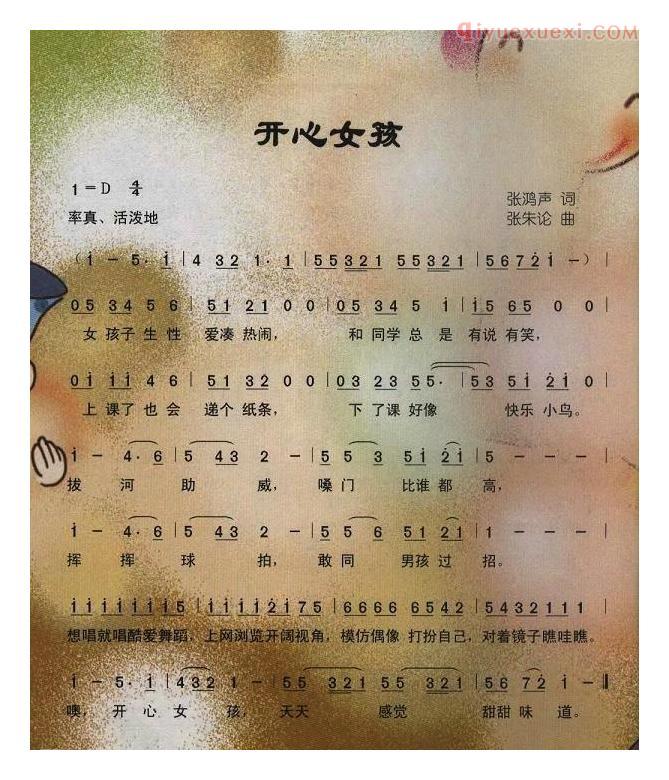 qiyuexuexi.com
开心女孩
1=D 4/4
张鸿声 词
率真、活泼地
张朱论 曲
(i - 5· i | 4 32 1· 1 | 55321 55321 | 5672i -) |
05 34 5 6 | 51 21 0 0 | 05 34 5 i | i5 65 0 0 |
女孩子生性 爱凑热闹, 和同学总是有说有笑,
0i ii 4 6 | 51 32 0 0 | 03 23 55· | 53 5i 2i 0 |
上课了也会 递个纸条, 下了课好像 快乐小鸟。
i - 4· 6 | 5 43 2 - | 5 5 3 5i 2i | 5 - - - |
拔河助威, 嗓门比谁都高,
i - 4· 6 | 5 43 2 - | 5 5 6 51 21 | 1 - - - |
挥挥球拍, 敢同男孩过招。
iiiiiii5 | iiii2i75 | 6666 6542 | 5432111 |
想唱就唱酷爱舞蹈, 上网浏览开阔视角, 模仿偶像 打扮自己, 对着镜子瞧哇瞧。
i - 5· i | 432 1 - | 55 321 55 321 | 56 72 i - ‖
噢, 开心女孩, 天天感觉甜甜味道。